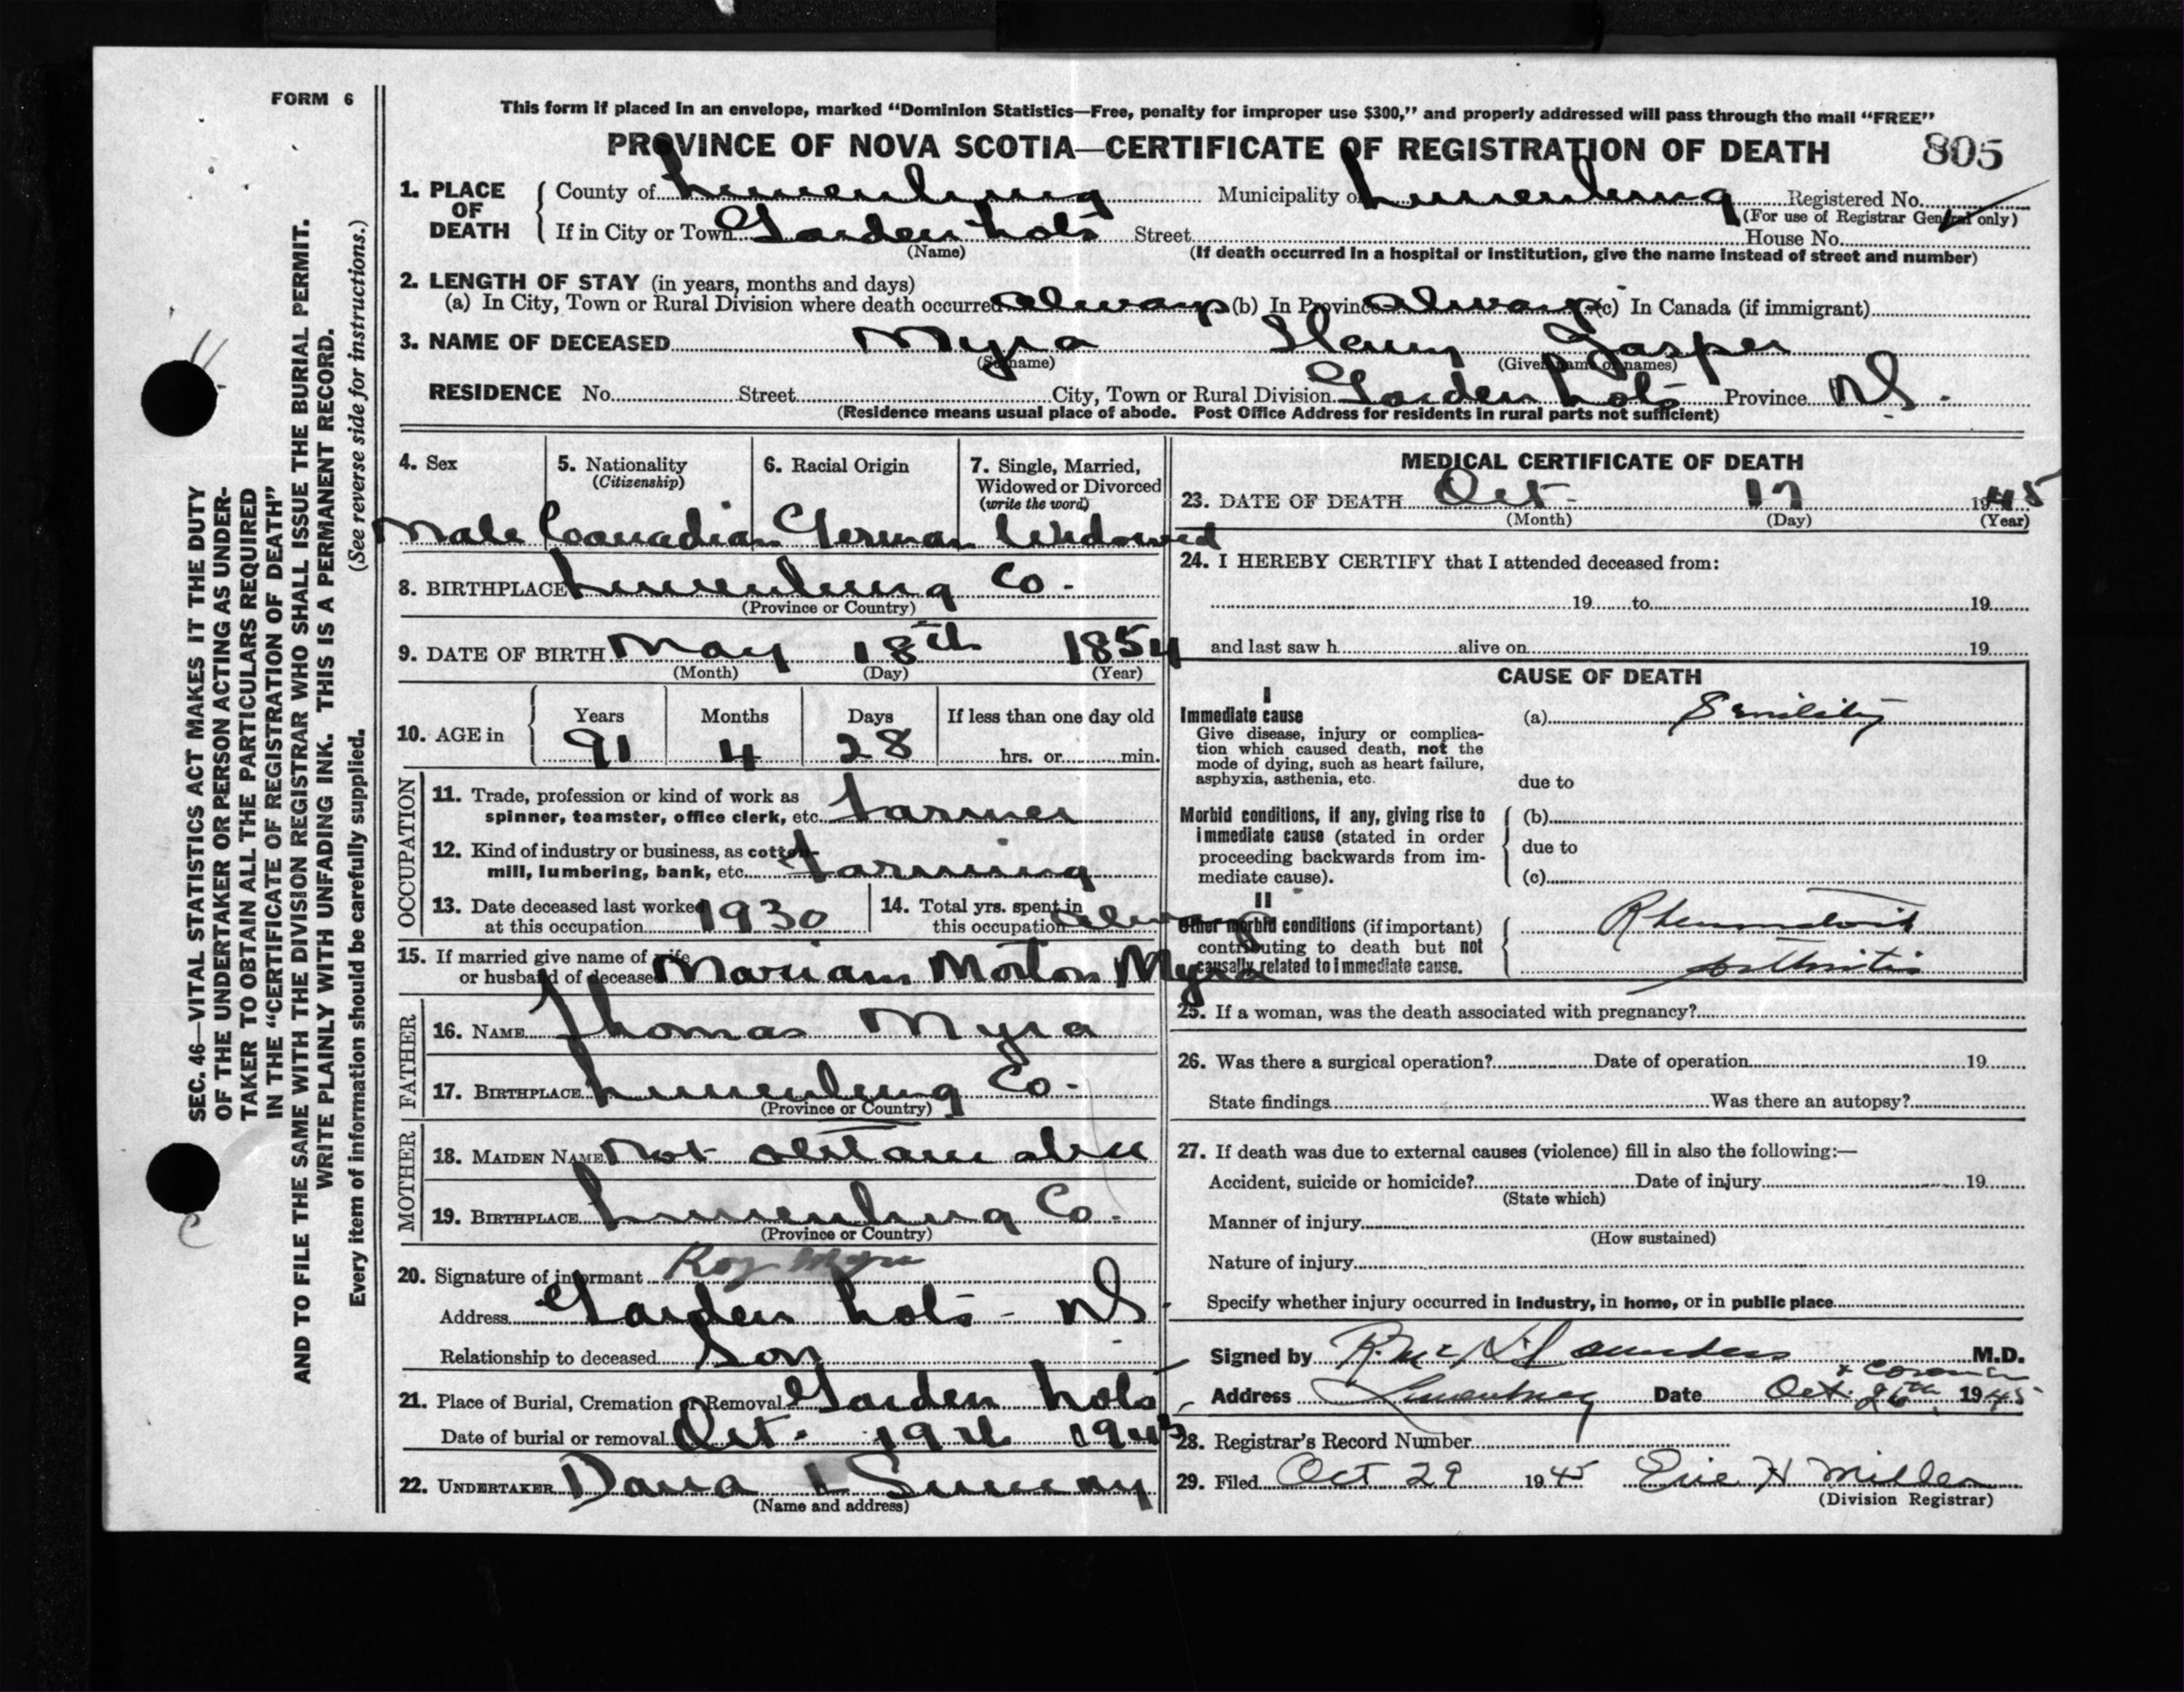 FORM 6
This form if placed in an envelope, marked “Dominion Statistics—Free, penalty for improper use $300,” and properly addressed will pass through the mail “FREE”
PROVINCE OF NOVA SCOTIA—CERTIFICATE OF REGISTRATION OF DEATH 805
1. PLACE OF DEATH
County of Lunenburg Municipality of Lunenburg Registered No.
(For use of Registrar General only)
If in City or Town Garden Lots Street House No.
(Name) (If death occurred in a hospital or institution, give the name instead of street and number)
2. LENGTH OF STAY (in years, months and days)
(a) In City, Town or Rural Division where death occurred always (b) In Province always (c) In Canada (if immigrant)
3. NAME OF DECEASED Myra Henry Gasper
(Surname) (Given name or names)
RESIDENCE No. Street City, Town or Rural Division Garden Lots Province N.S.
(Residence means usual place of abode. Post Office Address for residents in rural parts not sufficient)
4. Sex
Male
5. Nationality
(Citizenship)
Canadian
6. Racial Origin
German
7. Single, Married,
Widowed or Divorced
(write the word)
Widowed
8. BIRTHPLACE Lunenburg Co.
(Province or Country)
9. DATE OF BIRTH May 18th 1854
(Month) (Day) (Year)
10. AGE in
Years Months Days If less than one day old
91 4 28 hrs. or min.
OCCUPATION
11. Trade, profession or kind of work as
spinner, teamster, office clerk, etc. farmer
12. Kind of industry or business, as cotton-
mill, lumbering, bank, etc. farming
13. Date deceased last worked
at this occupation 1930
14. Total yrs. spent in
this occupation always
15. If married give name of wife
or husband of deceased Mariam Morton Myra
FATHER
16. NAME Thomas Myra
17. BIRTHPLACE Lunenburg Co.
(Province or Country)
MOTHER
18. MAIDEN NAME Not obtainable
19. BIRTHPLACE Lunenburg Co.
(Province or Country)
20. Signature of informant Roy Myra
Address Garden Lots - N.S.
Relationship to deceased Son
21. Place of Burial, Cremation or Removal Garden Lots
Date of burial or removal Oct. 19th 1945
22. UNDERTAKER
(Name and address)
MEDICAL CERTIFICATE OF DEATH
23. DATE OF DEATH Oct. 17 1945
(Month) (Day) (Year)
24. I HEREBY CERTIFY that I attended deceased from:
19 to 19
and last saw h alive on 19
CAUSE OF DEATH
I
Immediate cause
Give disease, injury or complica-
tion which caused death, not the
mode of dying, such as heart failure,
asphyxia, asthenia, etc.
(a) Senility
due to
Morbid conditions, if any, giving rise to
immediate cause (stated in order
proceeding backwards from im-
mediate cause).
(b)
due to
(c)
II
Other morbid conditions (if important)
contributing to death but not
causally related to immediate cause.
Rheumatoid
arthritis
25. If a woman, was the death associated with pregnancy?
26. Was there a surgical operation? Date of operation 19
State findings Was there an autopsy?
27. If death was due to external causes (violence) fill in also the following:—
Accident, suicide or homicide? Date of injury 19
(State which)
Manner of injury
(How sustained)
Nature of injury
Specify whether injury occurred in Industry, in home, or in public place
Signed by Saunders M.D.
+ Coroner
Address Lunenburg Date Oct. 26th 1945
28. Registrar's Record Number
29. Filed Oct 29 1945 H Miller
(Division Registrar)
SEC. 46—VITAL STATISTICS ACT MAKES IT THE DUTY
OF THE UNDERTAKER OR PERSON ACTING AS UNDER-
TAKER TO OBTAIN ALL THE PARTICULARS REQUIRED
IN THE “CERTIFICATE OF REGISTRATION OF DEATH”
AND TO FILE THE SAME WITH THE DIVISION REGISTRAR WHO SHALL ISSUE THE BURIAL PERMIT.
WRITE PLAINLY WITH UNFADING INK. THIS IS A PERMANENT RECORD.
Every item of information should be carefully supplied. (See reverse side for instructions.)